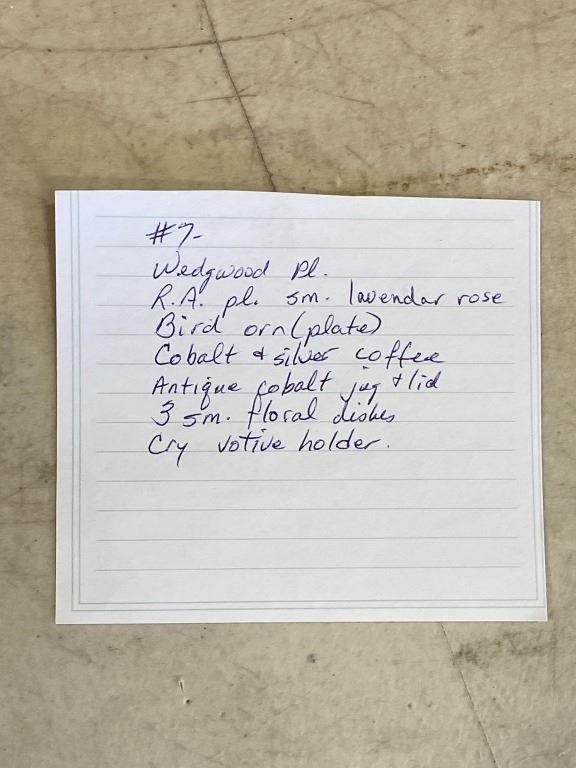 #7-
Wedgwood Pl.
R.A. pl. sm. lavendar rose
Bird orn (plate)
Cobalt & silver coffee
Antique cobalt jug & lid
3 sm. floral dishes
Cry votive holder.